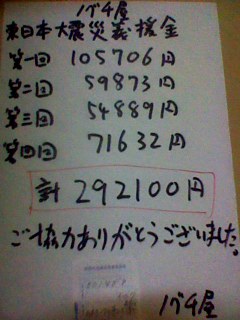 バチ屋
東日本大震災義援金
第一回 105706円
第二回 59873円
第三回 54889円
第四回 71632円
計 292100円
ご協力ありがとうございました。
バチ屋